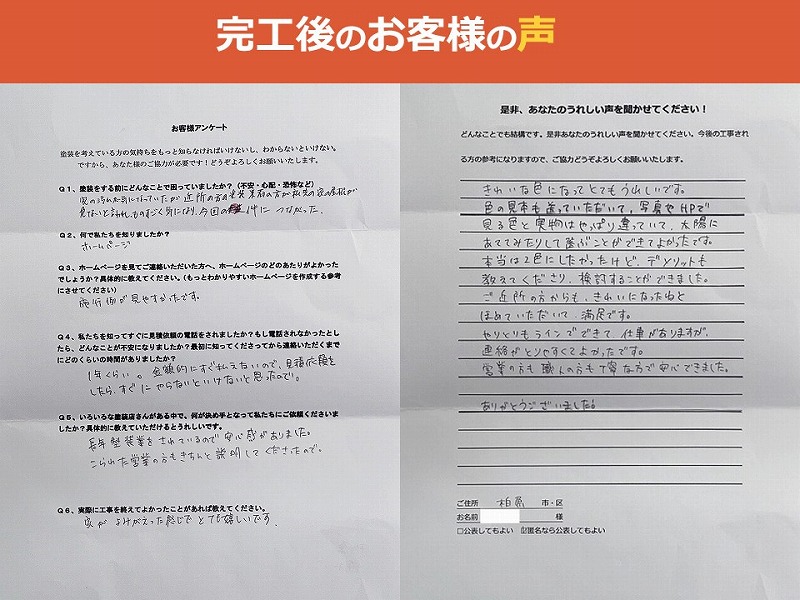 完工後のお客様の声
お客様アンケート
塗装を考えている方の気持ちをもっと知らなければいけないし、わからないといけない。
ですから、あなた様のご協力が必要です！どうぞよろしくお願いいたします。
Q1、塗装をする前にどんなことで困っていましたか？（不安・心配・恐怖など）
家の汚れた気になっていたが近所の方の塗装業者の方が私共の家の屋根が
見ないと言われ、ものすごく気になり、今回の件につながった。
Q2、何で私たちを知りましたか？
ホームページ
Q3、ホームページを見てご連絡いただいた方へ、ホームページのどのあたりがよかった
でしょうか？具体的に教えてください。（もっとわかりやすいホームページを作成する参考
にさせてください）
施術例が見やすかったです。
Q4、私たちを知ってすぐに見積依頼の電話をされましたか？もし電話されなかったとし
たら、どんなことが不安になりましたか？最初に知ってくださってから連絡いただくまで
にどのくらいの時間がありましたか？
1年くらい。金額的にすぐ払えないので、見積依頼を
したら、すぐにやらないといけないと思ったので。
Q5、いろいろな塗装店さんがある中で、何が決め手となって私たちにご依頼くださいま
したか？具体的に教えていただけるとうれしいです。
長年塗装業をされているので安心感がありました。
こられた営業の方もきちんと説明してくださったので。
Q6、実際に工事を終えてよかったことがあれば教えてください。
家がよみがえった感じでとても嬉しいです。
是非、あなたのうれしい声を聞かせてください！
どんなことでも結構です。是非あなたのうれしい声を聞かせてください。今後の工事され
る方の参考になりますので、ご協力どうぞよろしくお願いいたします。
きれいな色になってとてもうれしいです。
色の見本も塗っていただいて、写真やHPで
見る色と実物はやっぱり違っていて、太陽に
あててみたりして選ぶことができてよかったです。
本当は2色にしたかったけど、デメリットも
教えてくださり、検討することができました。
ご近所の方からも、きれいになったねと
ほめていただいて、満足です。
やりとりもラインでできて、仕事がありますが、
連絡がとりやすくてよかったです。
営業の方も職人の方も丁寧な方で安心できました。
ありがとうございました。
ご住所 柏原 市・区
お名前 様
□公表してもよい ☑匿名なら公表してもよい